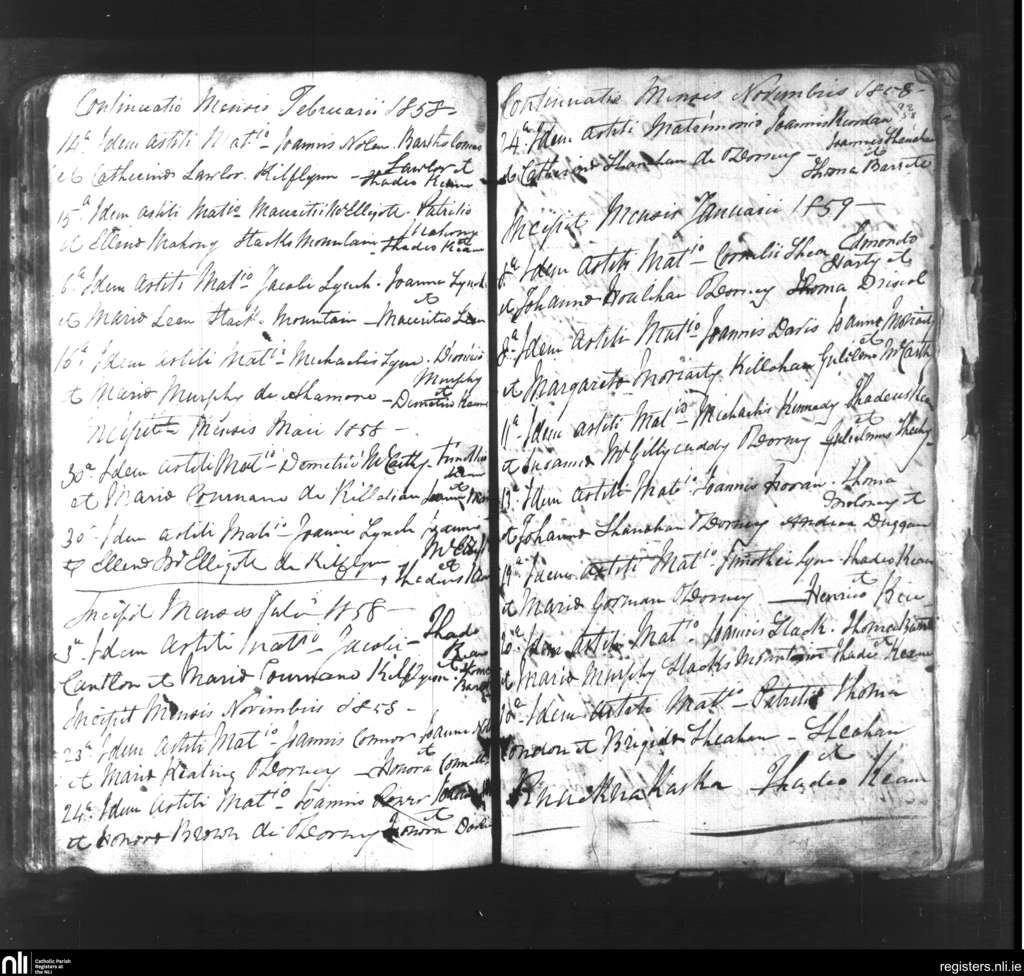 Continuatio Mensis Februarii 1858-
14a. Idem astiti Matio- Joannis Nolan. Barth Connor
et Catherinae Lawlor. Kilflynn - Lawlor et
Thadeo Keane
15a Idem astiti Matio Mauritii McElligote. Patritio
Mahony
et Ellenae Mahony Stacks Mountain - et Thadeo Keane
6a Idem astiti Matio Jacobi Lynch. Joanne Lynch
et
et Maria Leen Stacks Mountain - Mauritio Leen
16a Idem astiti Matio- Michaelis Lyne. Dionisio
Murphy
et Maria Murphy de Shamone - et Demetrio Keane
Incipit Mensis Maii 1858-
30a Idem astiti Matio- Demetrii McCarthy. Timotheo
et Maria Cournane de Killahan
30a Idem astiti Matio- Joannis Lynch Joanne
et Ellenae McElligote de Kilflynn McCarthy
et
Thadeus Keane
Incipit Mensis Julii 1858-
5a. Idem Astiti Matio- Jacobi - Thadeo
Keane
Cantlon et Maria Cournane Kilflynn. et Thoma
Incipit Mensis Novembris 1858-
23a Idem Astiti Matio- Joannis Connor Joanne
et
et Maria Keating ODorney - Honora Connell
24a. Idem Astiti Matio- Joannis Power
et
et Honora Brown de ODorney Honora
Continuatio Mensis Novembris 1858-
24a. Idem Astiti Matrimonio Joannis Riordan
Joannis Shanahan
et
et Catherinae Shanahan de ODorney - Thoma Barrett
Incipit Mensis Januarii 1859-
Idem Astiti Matio- Cornelii Shea Edmondo
Harty et
et Johanna Houlihan ODorney Thoma Driscol
8a. Idem astiti Matio Joannis Davis Joanne Moriarty
et
et Margareta Moriarty Killahan Gulielmo McCarthy
11a. Idem astiti Matio- Michaelis Kennedy Thadeus Keane
et
et Susanna McGillycuddy ODorney Gulielmus Sheehy
13a. Idem Astiti Matio Joannis Horan. Thoma
Molony et
et Johanna Shanahan ODorney Andrea Duggan
19a. Idem Astiti Matio. Timothei Lyne Thadeo Keane
et
et Maria Gorman ODorney - Henrico
20a Idem Astiti Matio. Joannis Slack. Thoma
et
et Maria Murphy Stacks Mountain Thadeo Keane
Idem Astiti Matio- Patritii Thoma
London et Brigida Sheahan - Sheahan
et
Knucknakaska Thadeo Keane
nli
Catholic Parish
Registers at
the NLI
registers.nli.ie